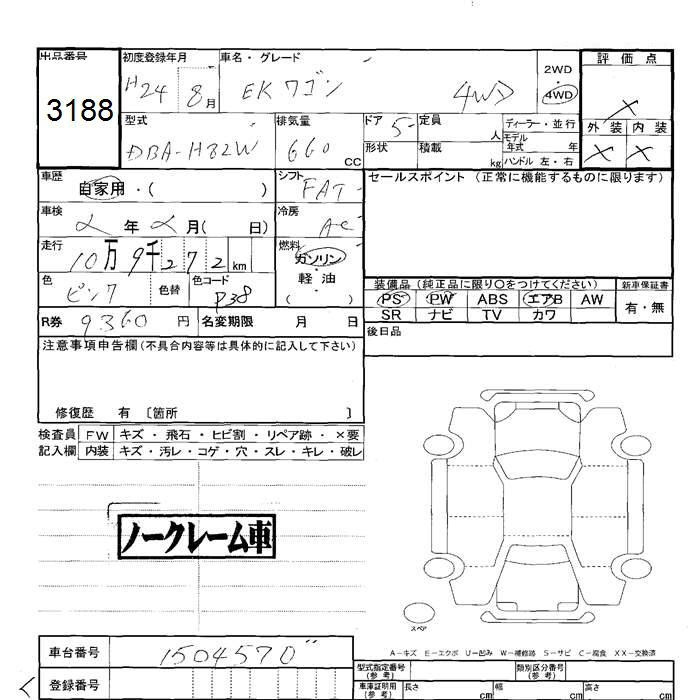 出品番号 初度登録年月 車名・グレード 評価点
3188 H24 8月 EKワゴン 4WD 2WD 4WD ×
型式 排気量 ドア 5 定員 人 ディーラー・並行 外装 内装
DBA-H82W 660 CC 形状 積載 kg モデル年式 年 ハンドル 左・右 × ×
車歴 シフト セールスポイント(正常に機能するものに限ります)
自家用・( ) FAT
車検 年 月( 日) 冷房 AC
走行 10万9千272km 燃料 ガソリン
軽・油
( )
色 ピンク 色替 色コード P38
装備品(純正品に限り〇をつけてください) 新車保証書
PS PW ABS エアB AW 有・無
SR ナビ TV カワ
R券 9360円 名変期限 月 日 後日品
注意事項申告欄(不具合内容等は具体的に記入して下さい)
修復歴 有 〔箇所 〕
検査員 FW キズ・飛石・ヒビ割・リペア跡・×要
記入欄 内装 キズ・汚レ・コゲ・穴・スレ・キレ・破レ
ノークレーム車
スペア
A-キズ E-エクボ U-凹み W-補修跡 S-サビ C-腐食 XX-交換済
車台番号 1504570
登録番号
型式指定番号(参考) 類別区分番号(参考)
車庫証明用(参考) 長さ cm 幅 cm 高さ cm